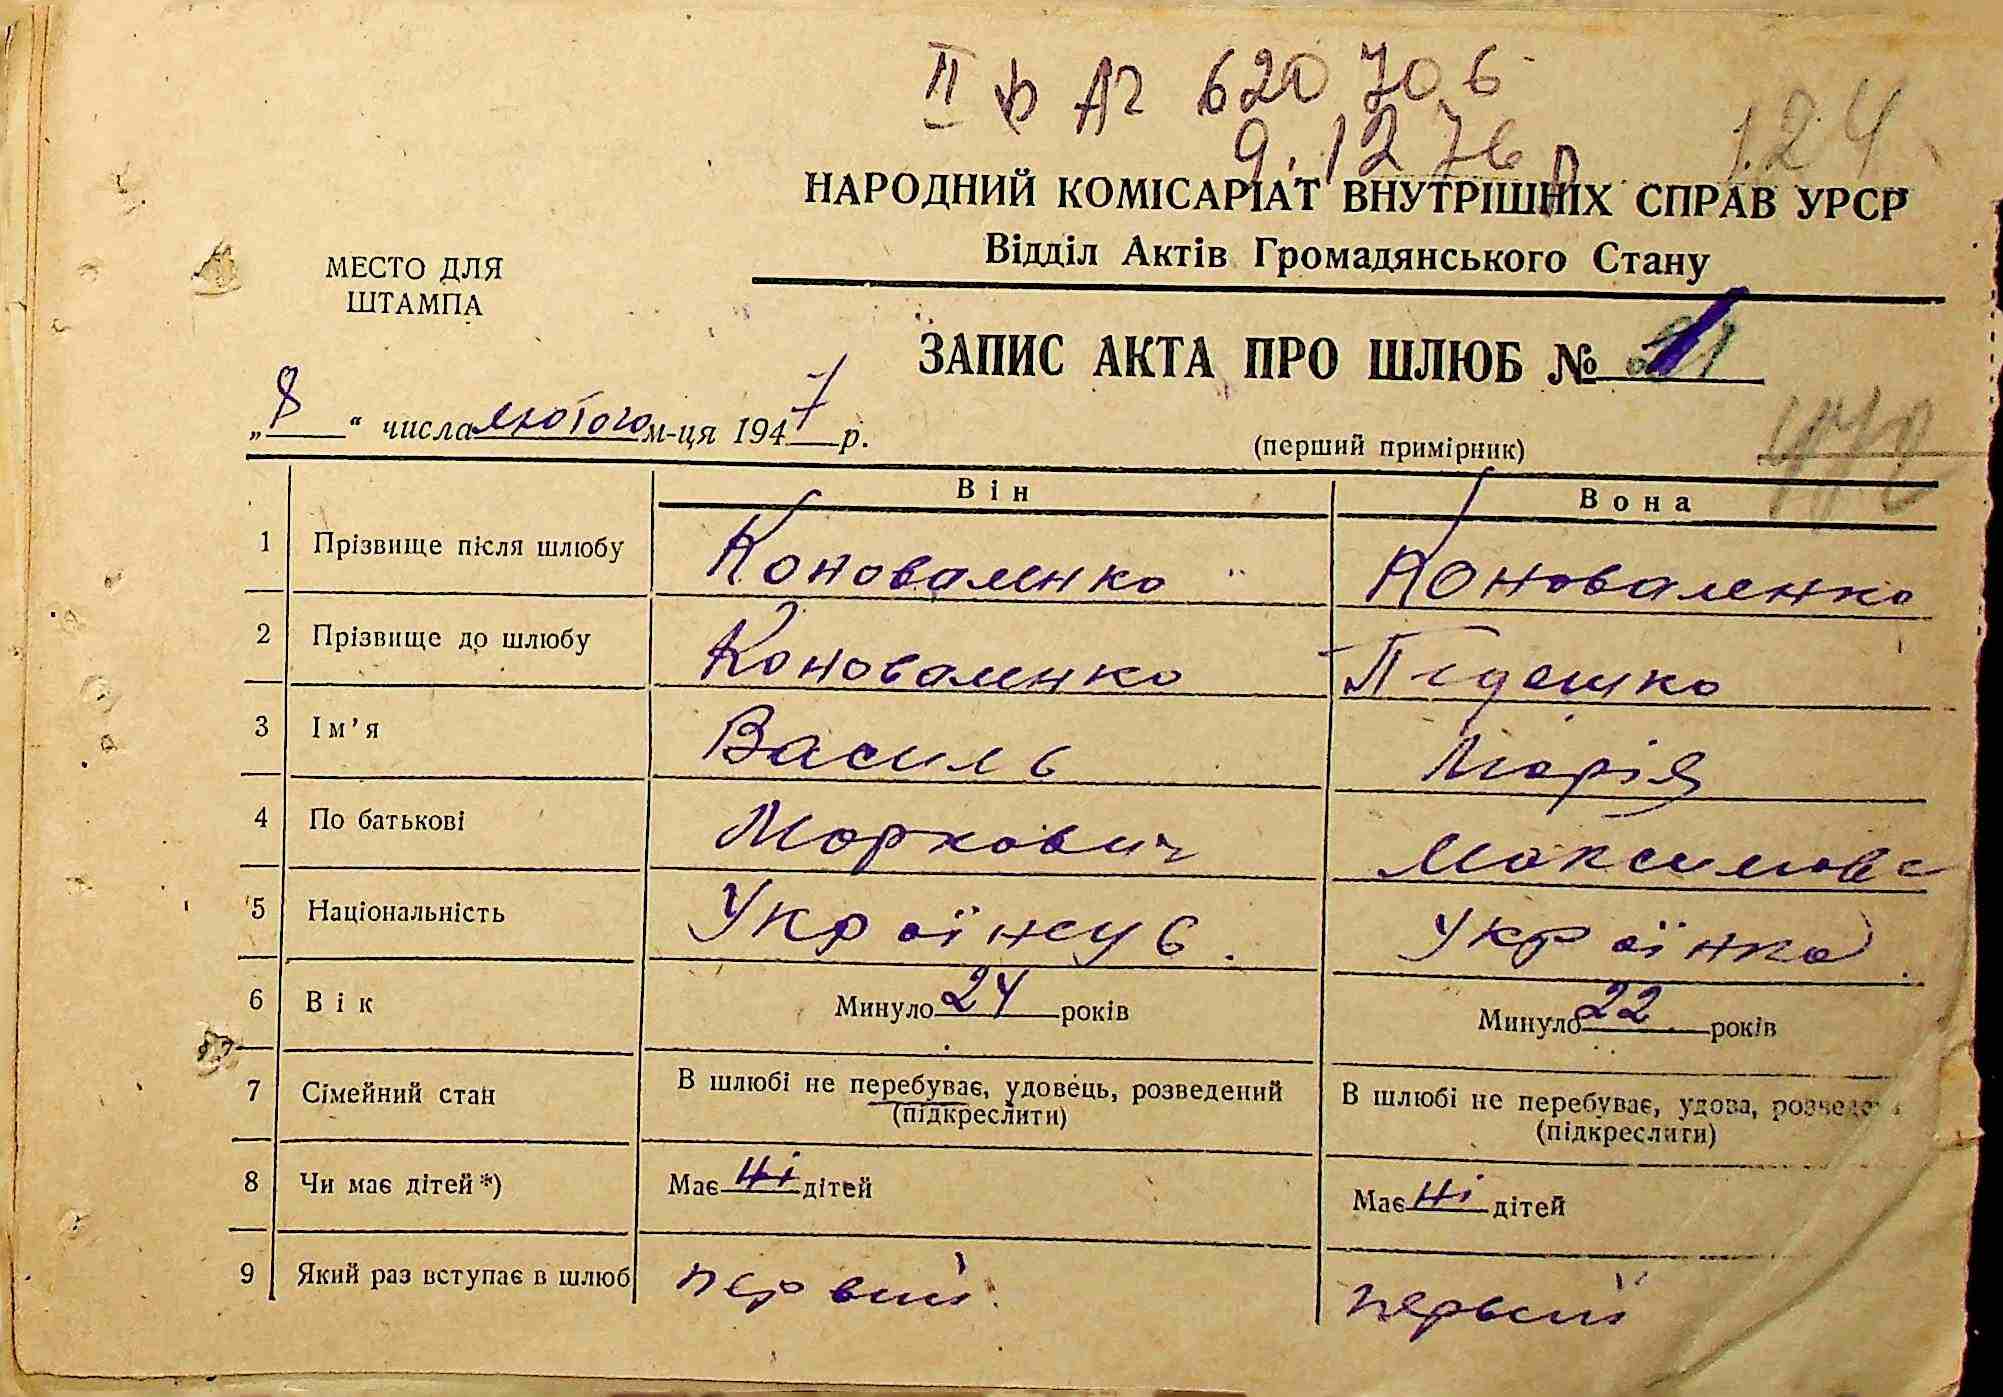 II ф АГ 620706
9.12 76 р
124
НАРОДНИЙ КОМІСАРІАТ ВНУТРІШНІХ СПРАВ УРСР
Відділ Актів Громадянського Стану
МЕСТО ДЛЯ
ШТАМПА
ЗАПИС АКТА ПРО ШЛЮБ №
„8“ числа лютого м-ця 1947 р.
(перший примірник)
Він Вона
1 Прізвище після шлюбу Коноваленко Коноваленко
2 Прізвище до шлюбу Коноваленко Підешко
3 Ім’я Василь Марія
4 По батькові Маркович Максимовс
5 Національність Українць. Українка.
6 Вік Минуло 24 років Минуло 22 років
7 Сімейний стан В шлюбі не перебуває, удовець, розведений В шлюбі не перебуває, удова,
(підкреслити) (підкреслити)
8 Чи має дітей *) Має ні дітей Має ні дітей
9 Який раз вступає в шлюб первий первий